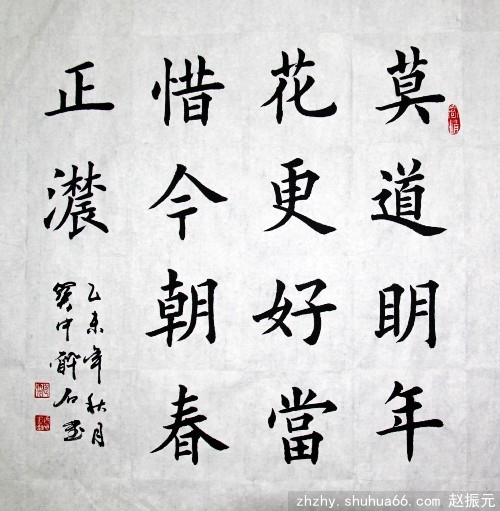 莫道眀年
花更好當
惜今朝春
正濃
乙未年秋月
中醉石
zhzhy.shuhua66.com 赵振元